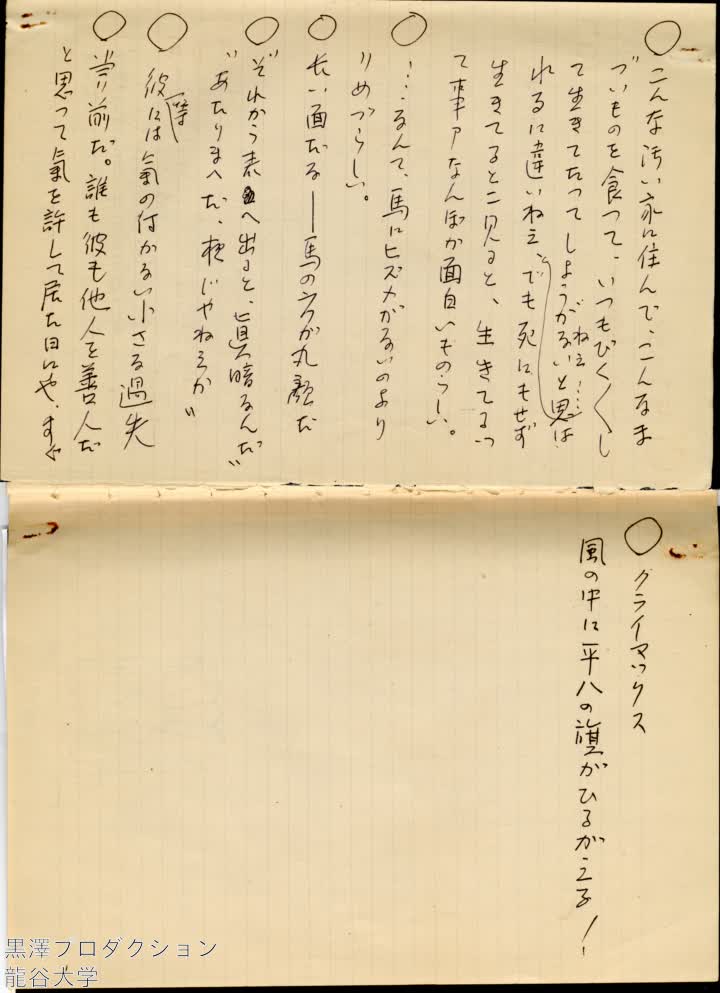 ○ こんな汚い家に住んで、こんなま
づいものを食つて、いつもびく〱し
て生きてたつてしようがないと思は
ねえ……
れるに違いねえ、でも死にもせず
生きてるとこ見ると、生きてるつ
て事アなんぼか面白いものらしい。
○ ……なんて、馬にヒズメがないのより
りめづらしい。
○ 長い面だな――馬の方が丸顔だ
○ "それから表へ出ると、真暗なんだ"
"あたりまへだ、夜じやねえか"
○ 彼等には氣の付かない小さな過失
○ 当り前だ。誰も彼も他人を善人だ
と思って氣を許して居た日にや、すぐ
○ クライマックス
風の中に平八の旗がひるがえる！
黒澤プロダクション
龍谷大学